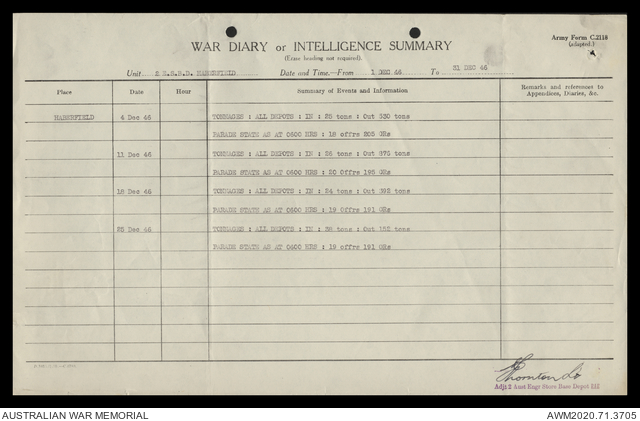 Army Form C.2118
(adapted.)
WAR DIARY or INTELLIGENCE SUMMARY
(Erase heading not required).
Unit 2 E.S.B.D. HABERFIELD Date and Time.—From 1 DEC 46 To 31 DEC 46
Place Date Hour Summary of Events and Information Remarks and references to Appendices, Diaries, &c.
HABERFIELD 4 Dec 46 TONNAGES : ALL DEPOTS : IN : 25 tons : Out 530 tons
PARADE STATE AS AT 0600 HRS : 18 offrs 205 ORs
11 Dec 46 TONNAGES : ALL DEPOTS : IN : tons : Out 975 tons
PARADE STATE AS AT 0600 HRS : 20 Offrs 195 ORs
18 Dec 46 TONNAGES : ALL DEPOTS : IN : 24 tons : Out 392 tons
PARADE STATE AS AT 0600 HRS : 19 Offrs 191 ORs
25 Dec 46 TONNAGES : ALL DEPOTS : IN : tons : Out tons
PARADE STATE AS AT 0600 HRS : 19 Offrs 191 ORs
Thornton
Adjt 2 Aust Engr Store Base Depot
AUSTRALIAN WAR MEMORIAL AWM2020.71.3705